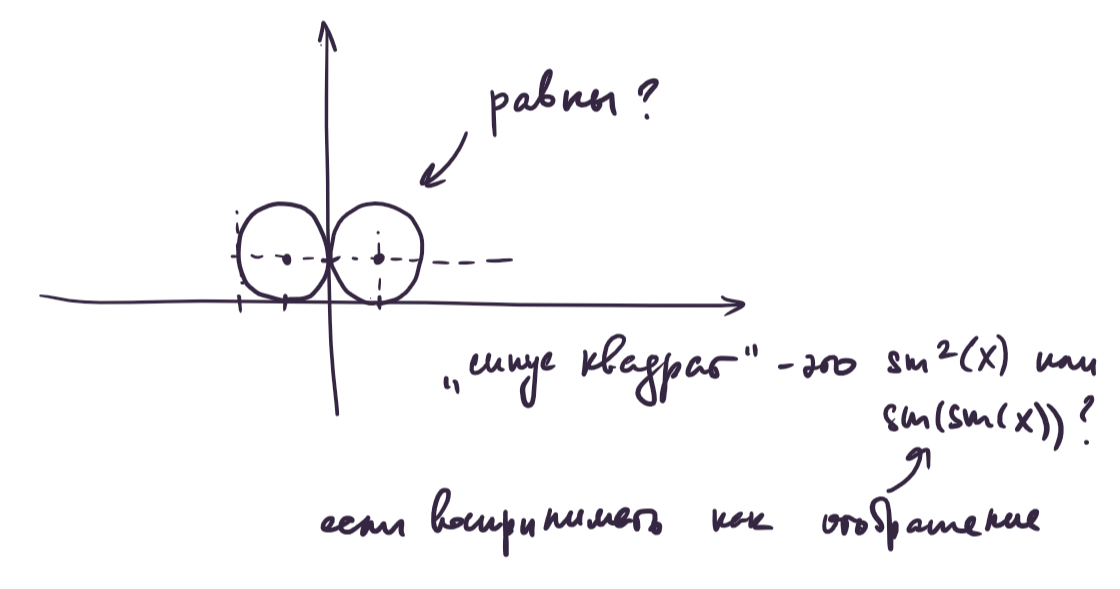 равны?
„синус квадрат" - это sin²(x) или
sin(sin(x))?
если воспринимать как отображение